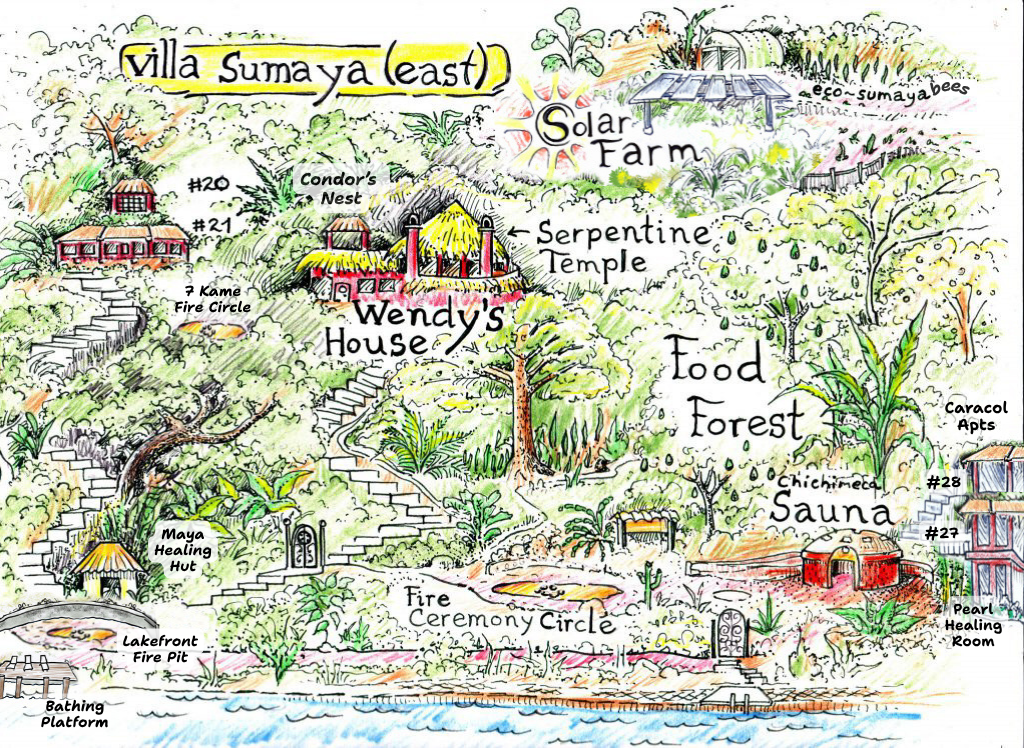 villa Sumaya (east)
eco~sumaya bees
Solar
Farm
#20
Condor's
Nest
#21
← Serpentine
Temple
7 Kame
Fire Circle
Wendy's
House
Food
Forest
Caracol
Apts
Chichimeca
Sauna
#28
#27
Maya
Healing
Hut
Fire
Ceremony Circle
Pearl
Healing
Room
Lakefront
Fire Pit
Bathing
Platform